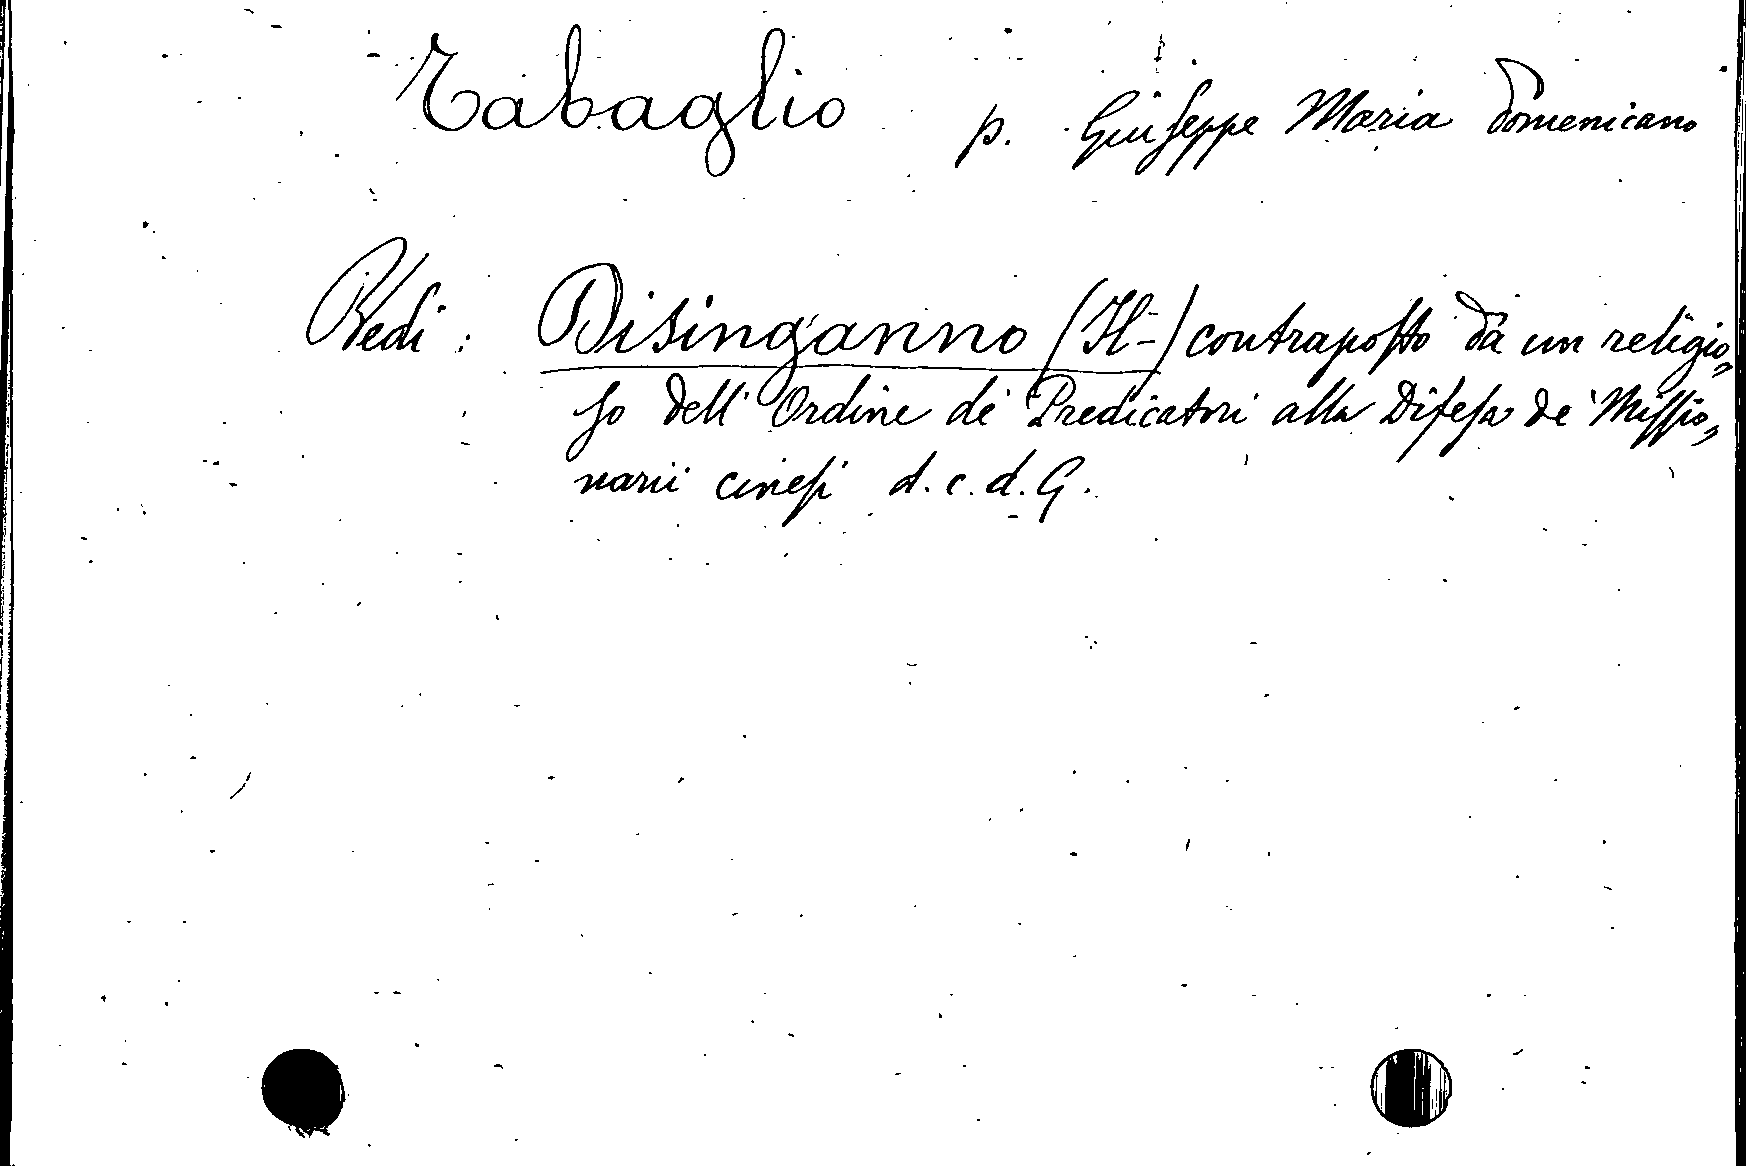 Tabaglio p. Giuseppe Maria domenicano
Vedi: Disinganno (Il-) contraposto da un religio„
so dell'Ordine de' Predicatori alla Difesa de' Missio„
narii cinesi d.c.d.G.